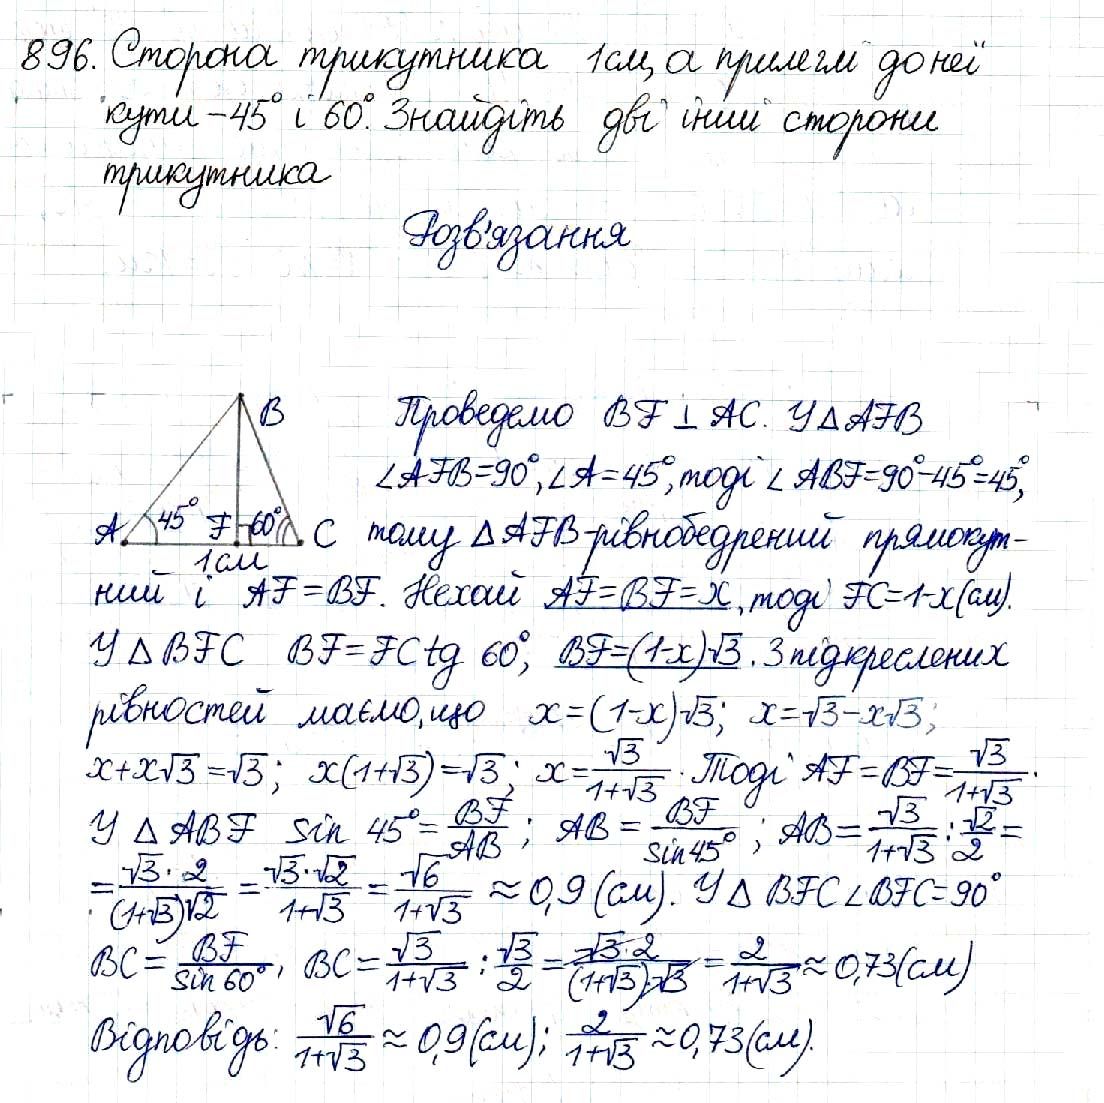 896. Сторона трикутника 1см, а прилеглі до неї
кути – 45° і 60°. Знайдіть дві інші сторони
трикутника
Розв'язання
B
A 45° F 60° C
1см
Проведемо BF ⊥ AC. У △ AFB
∠AFB=90°, ∠A=45°, тоді ∠ABF=90°-45°=45°,
тому △ AFB-рівнобедрений прямокут-
ний і AF=BF. Нехай AF=BF=x, тоді FC=1-x(см).
У △ BFC BF=FC tg 60°, BF=(1-x)√3. З підкреслених
рівностей маємо, що x=(1-x)√3; x=√3-x√3;
x+x√3=√3; x(1+√3)=√3; x=√3/(1+√3). Тоді AF=BF=√3/(1+√3).
У △ ABF sin 45°=BF/AB; AB=BF/sin45°; AB=√3/(1+√3):√2/2=
=√3·2/((1+√3)√2)=√3·√2/(1+√3)=√6/(1+√3)≈0,9(см). У △ BFC ∠BFC=90°
BC=BF/sin60°, BC=√3/(1+√3):√3/2=√3·2/((1+√3)·√3)=2/(1+√3)≈0,73(см)
Відповідь: √6/(1+√3)≈0,9(см); 2/(1+√3)≈0,73(см).